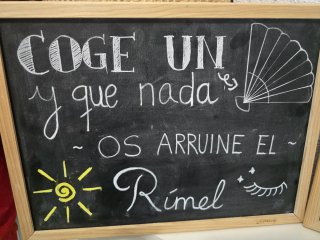 COGE UN
y que nada
~ OS ARRUINE EL ~
Rímel